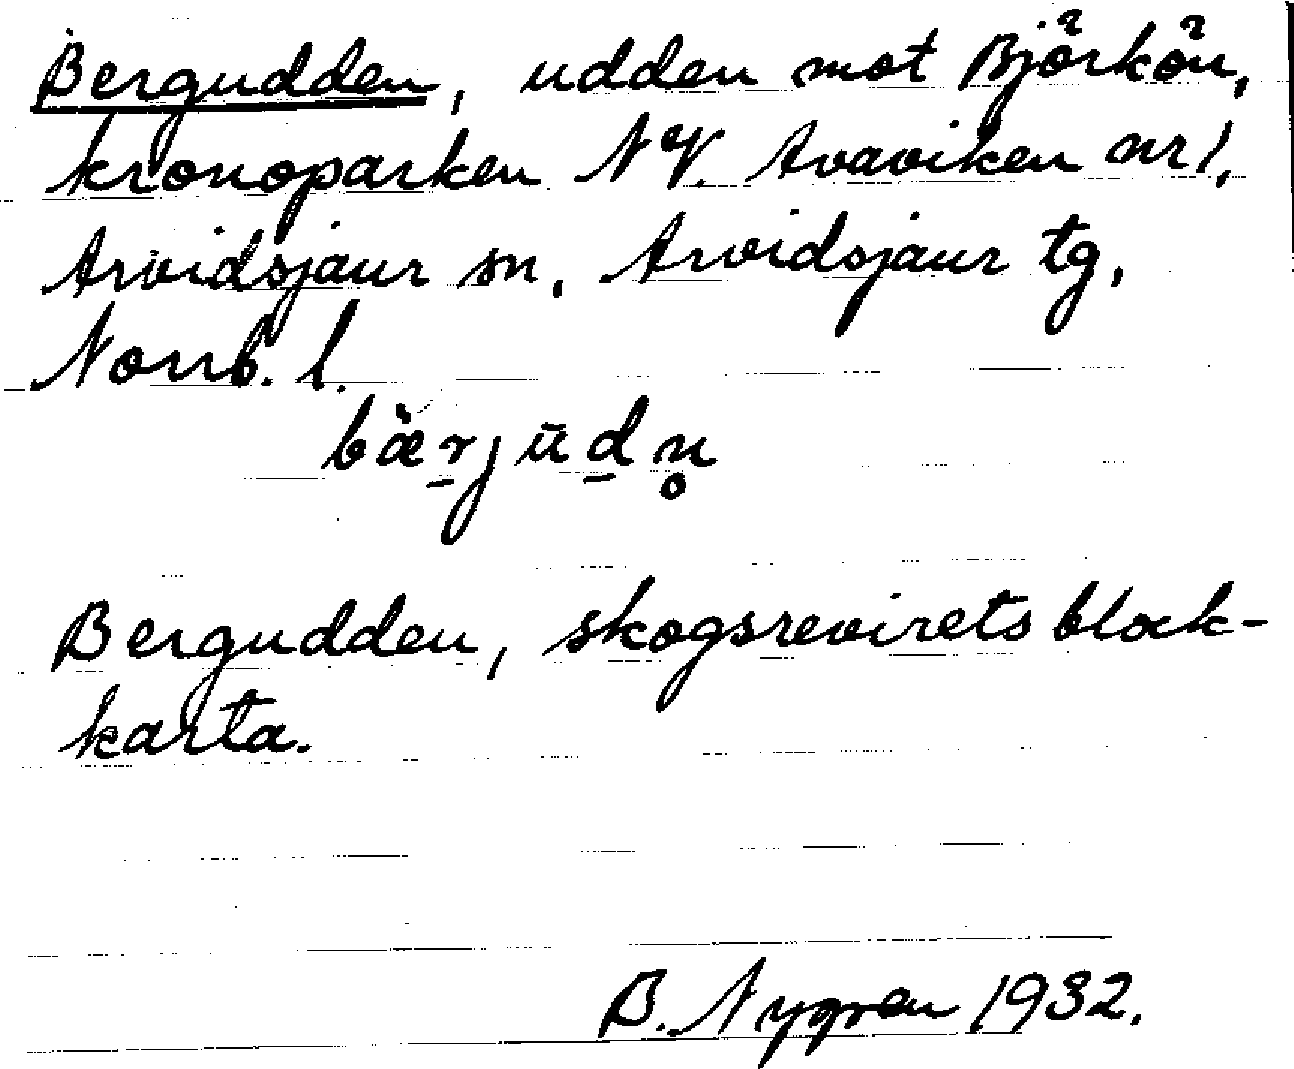 Bergudden, udden mot Björkön,
kronoparken NV. Avaviken nr 1,
Arvidsjaur sn, Arvidsjaur tg,
Norrb. l.
bæ̀r̠jūd̠n̥
Bergudden, skogsrevirets block-
karta.
B. Nygren 1932.